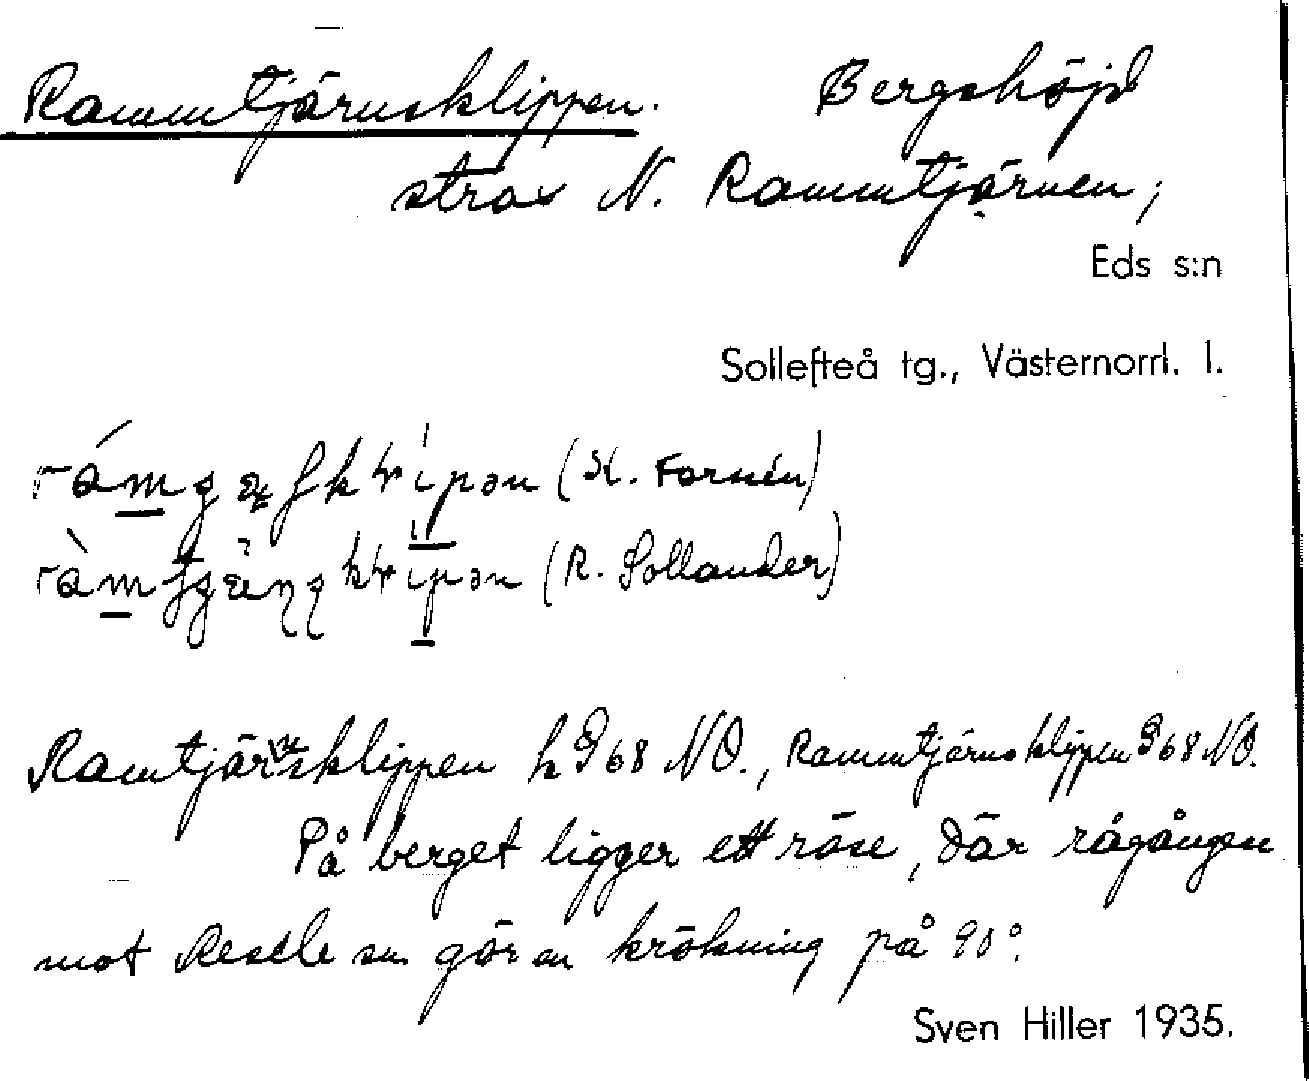 Rammtjärnsklippen. Bergshöjd
strax N. Rammtjärnen,
Eds s:n
Sollefteå tg., Västernorrl. l.
(K. Fornén)
(R. Sollander)
Ramtjärnsklippen h 968 NO., Rammtjärnsklippen 968 NO.
På berget ligger ett röse, där rågången
mot Resele sn gör en krökning på 90°.
Sven Hiller 1935.